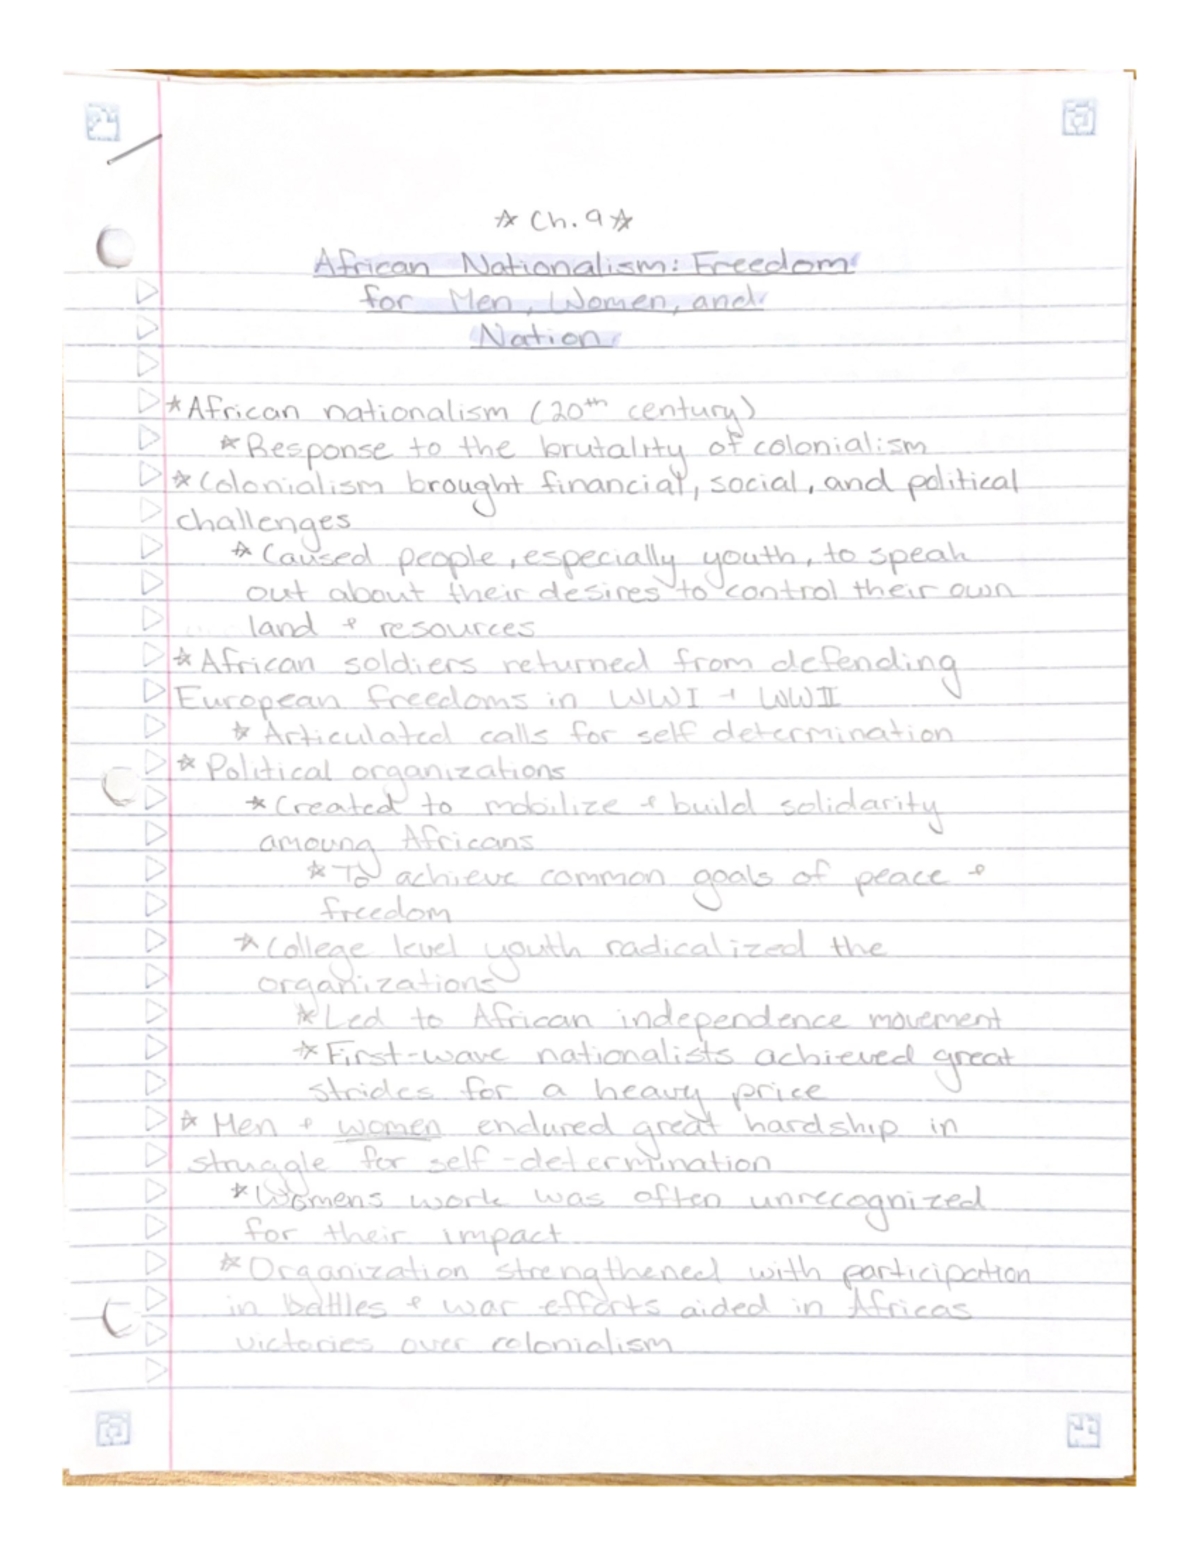 ☆ Ch. 9 ☆
African Nationalism: Freedom
for Men, Women, and
Nation
☆ African nationalism (20th century)
☆ Response to the brutality of colonialism
☆ Colonialism brought financial, social, and political
challenges
☆ Caused people, especially youth, to speak
out about their desires to control their own
land + resources
☆ African soldiers returned from defending
European freedoms in WWI + WWII
☆ Articulated calls for self determination
☆ Political organizations
☆ Created to mobilize + build solidarity
amoung Africans
☆ To achieve common goals of peace +
freedom
☆ College level youth radicalized the
organizations
☆ Led to African independence movement
☆ First-wave nationalists achieved great
strides for a heavy price
☆ Men + women endured great hardship in
struggle for self-determination
☆ Womens work was often unrecognized
for their impact
☆ Organization strengthened with participation
in battles + war efforts aided in Africas
victories over colonialism